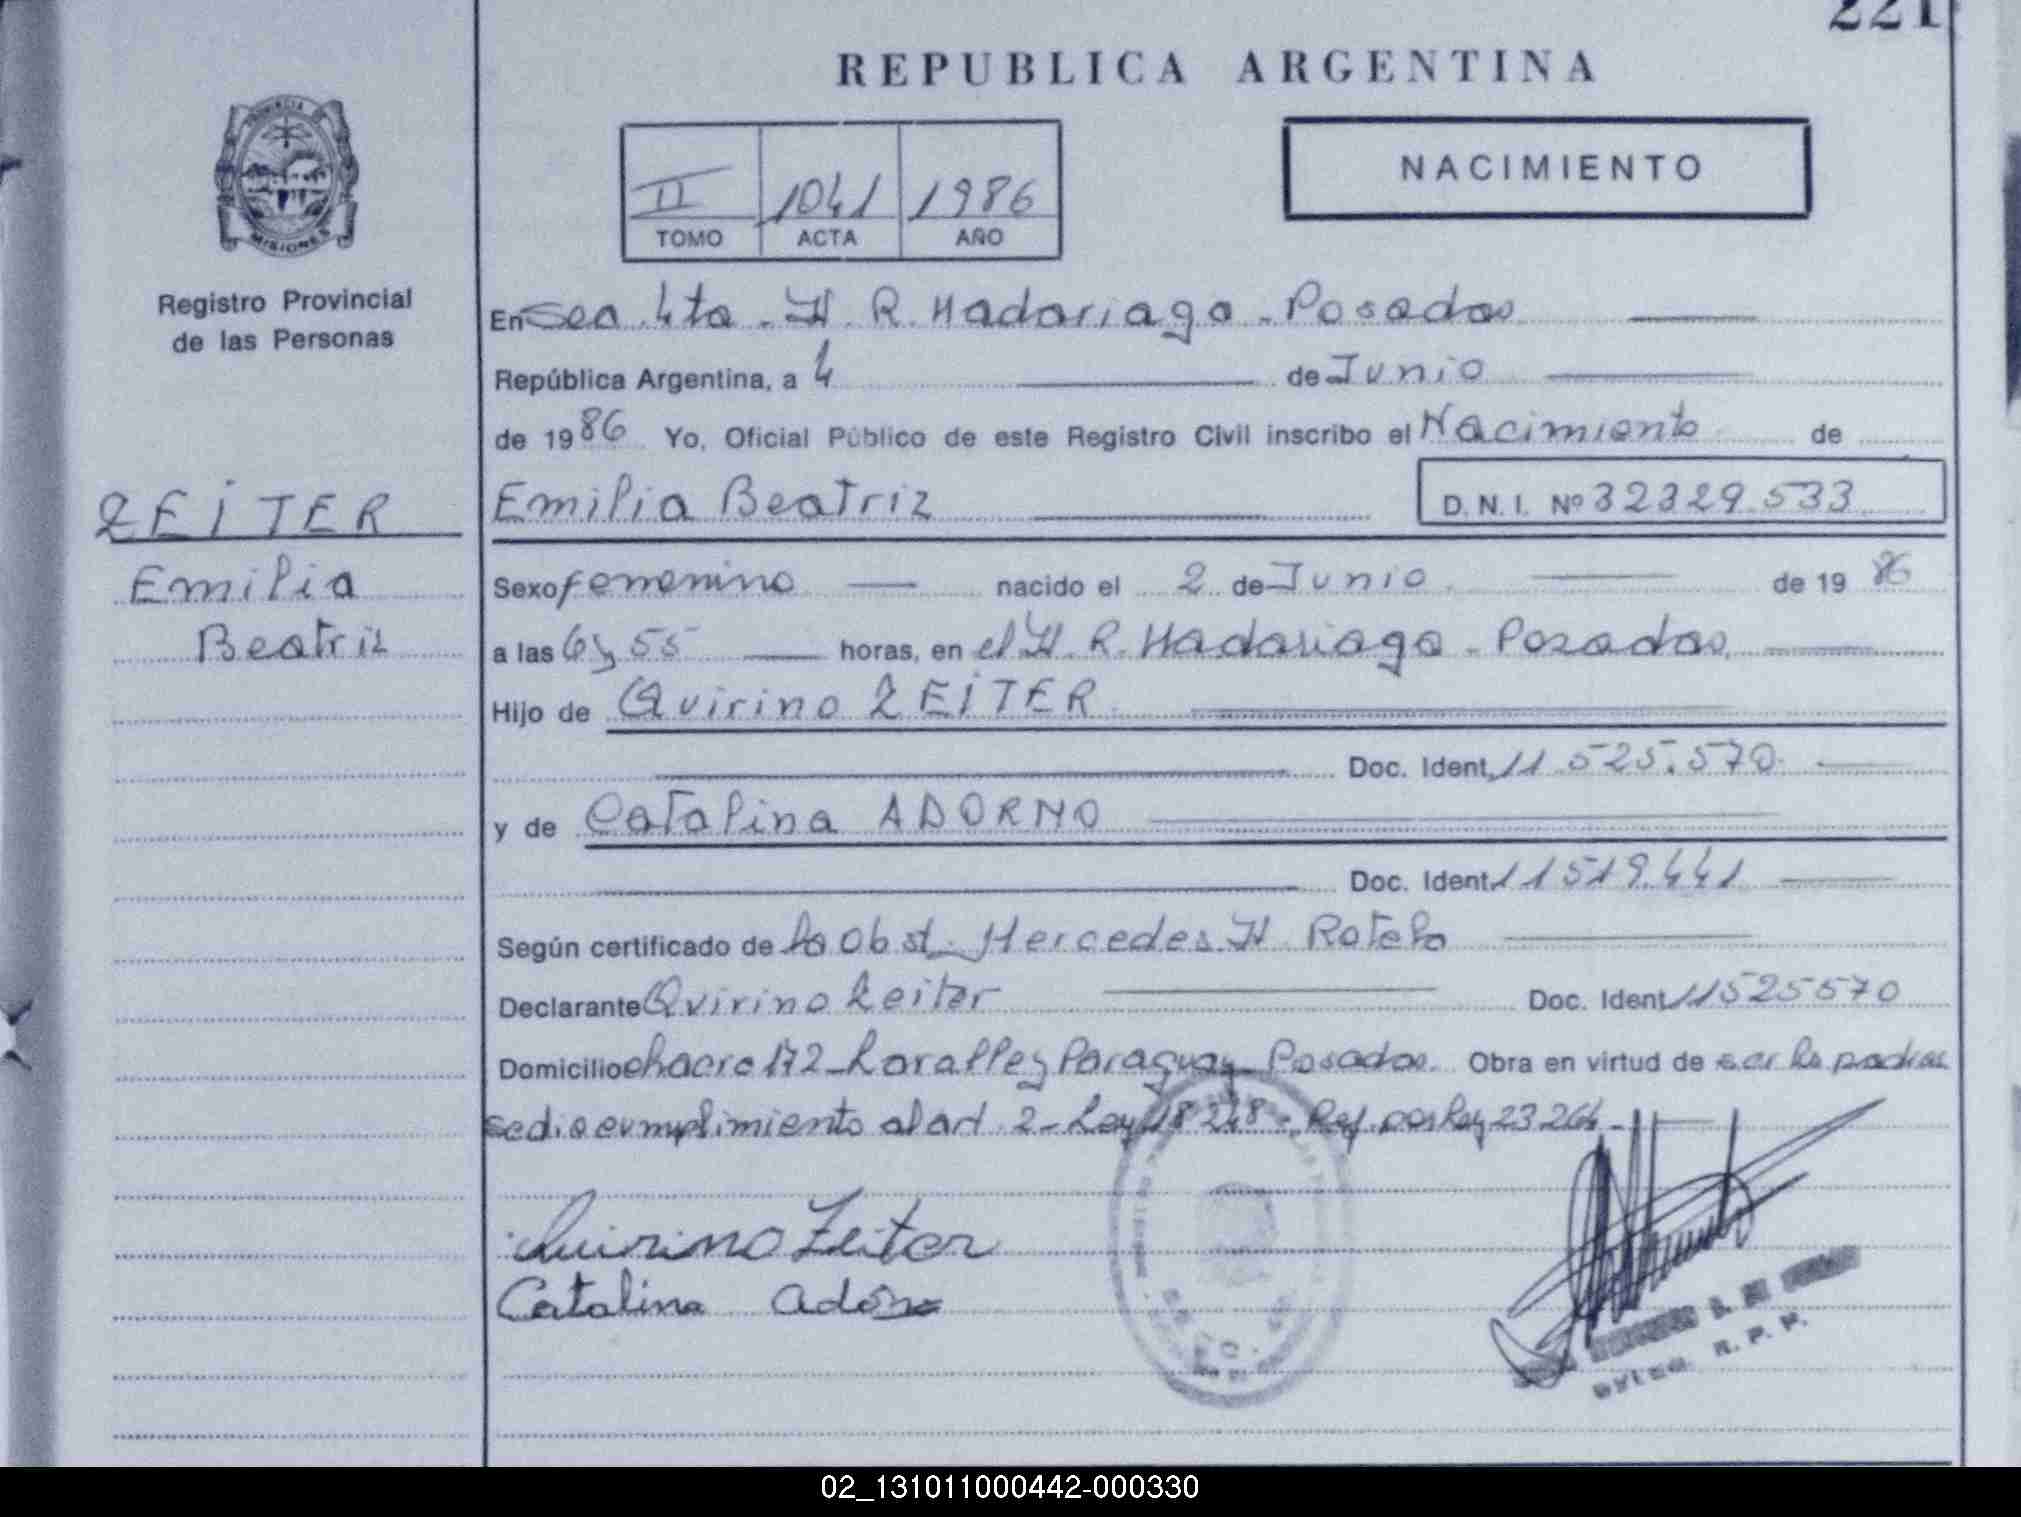 221
REPUBLICA ARGENTINA
PROVINCIA DE
MISIONES
Registro Provincial
de las Personas
II 1041 1986
TOMO ACTA AÑO
NACIMIENTO
En Sec. 4ta - H. R. Madariaga - Posadas
República Argentina, a 4 de Junio
de 1986 Yo, Oficial Público de este Registro Civil inscribo el Nacimiento de
Emilia Beatriz D. N. I. Nº 32329.533
ZEITER
Emilia
Beatriz
Sexo femenino nacido el 2 de Junio de 1986
a las 6 y 55 horas, en el H. R. Madariaga - Posadas
Hijo de Quirino ZEITER
Doc. Ident. 11.525.570
y de Catalina ADORNO
Doc. Ident. 11519.441
Según certificado de la Obst. Mercedes H Rotela
Declarante Quirino Zeiter Doc. Ident. 11525570
Domicilio chacra 172 - Lavalle y Paraguay - Posadas. Obra en virtud de ser los padres
se dio cumplimiento al art 2 - Ley 18248 - Ref. por Ley 23264 -
Quirino Zeiter
Catalina Adorno
R. P. P.
02_131011000442-000330